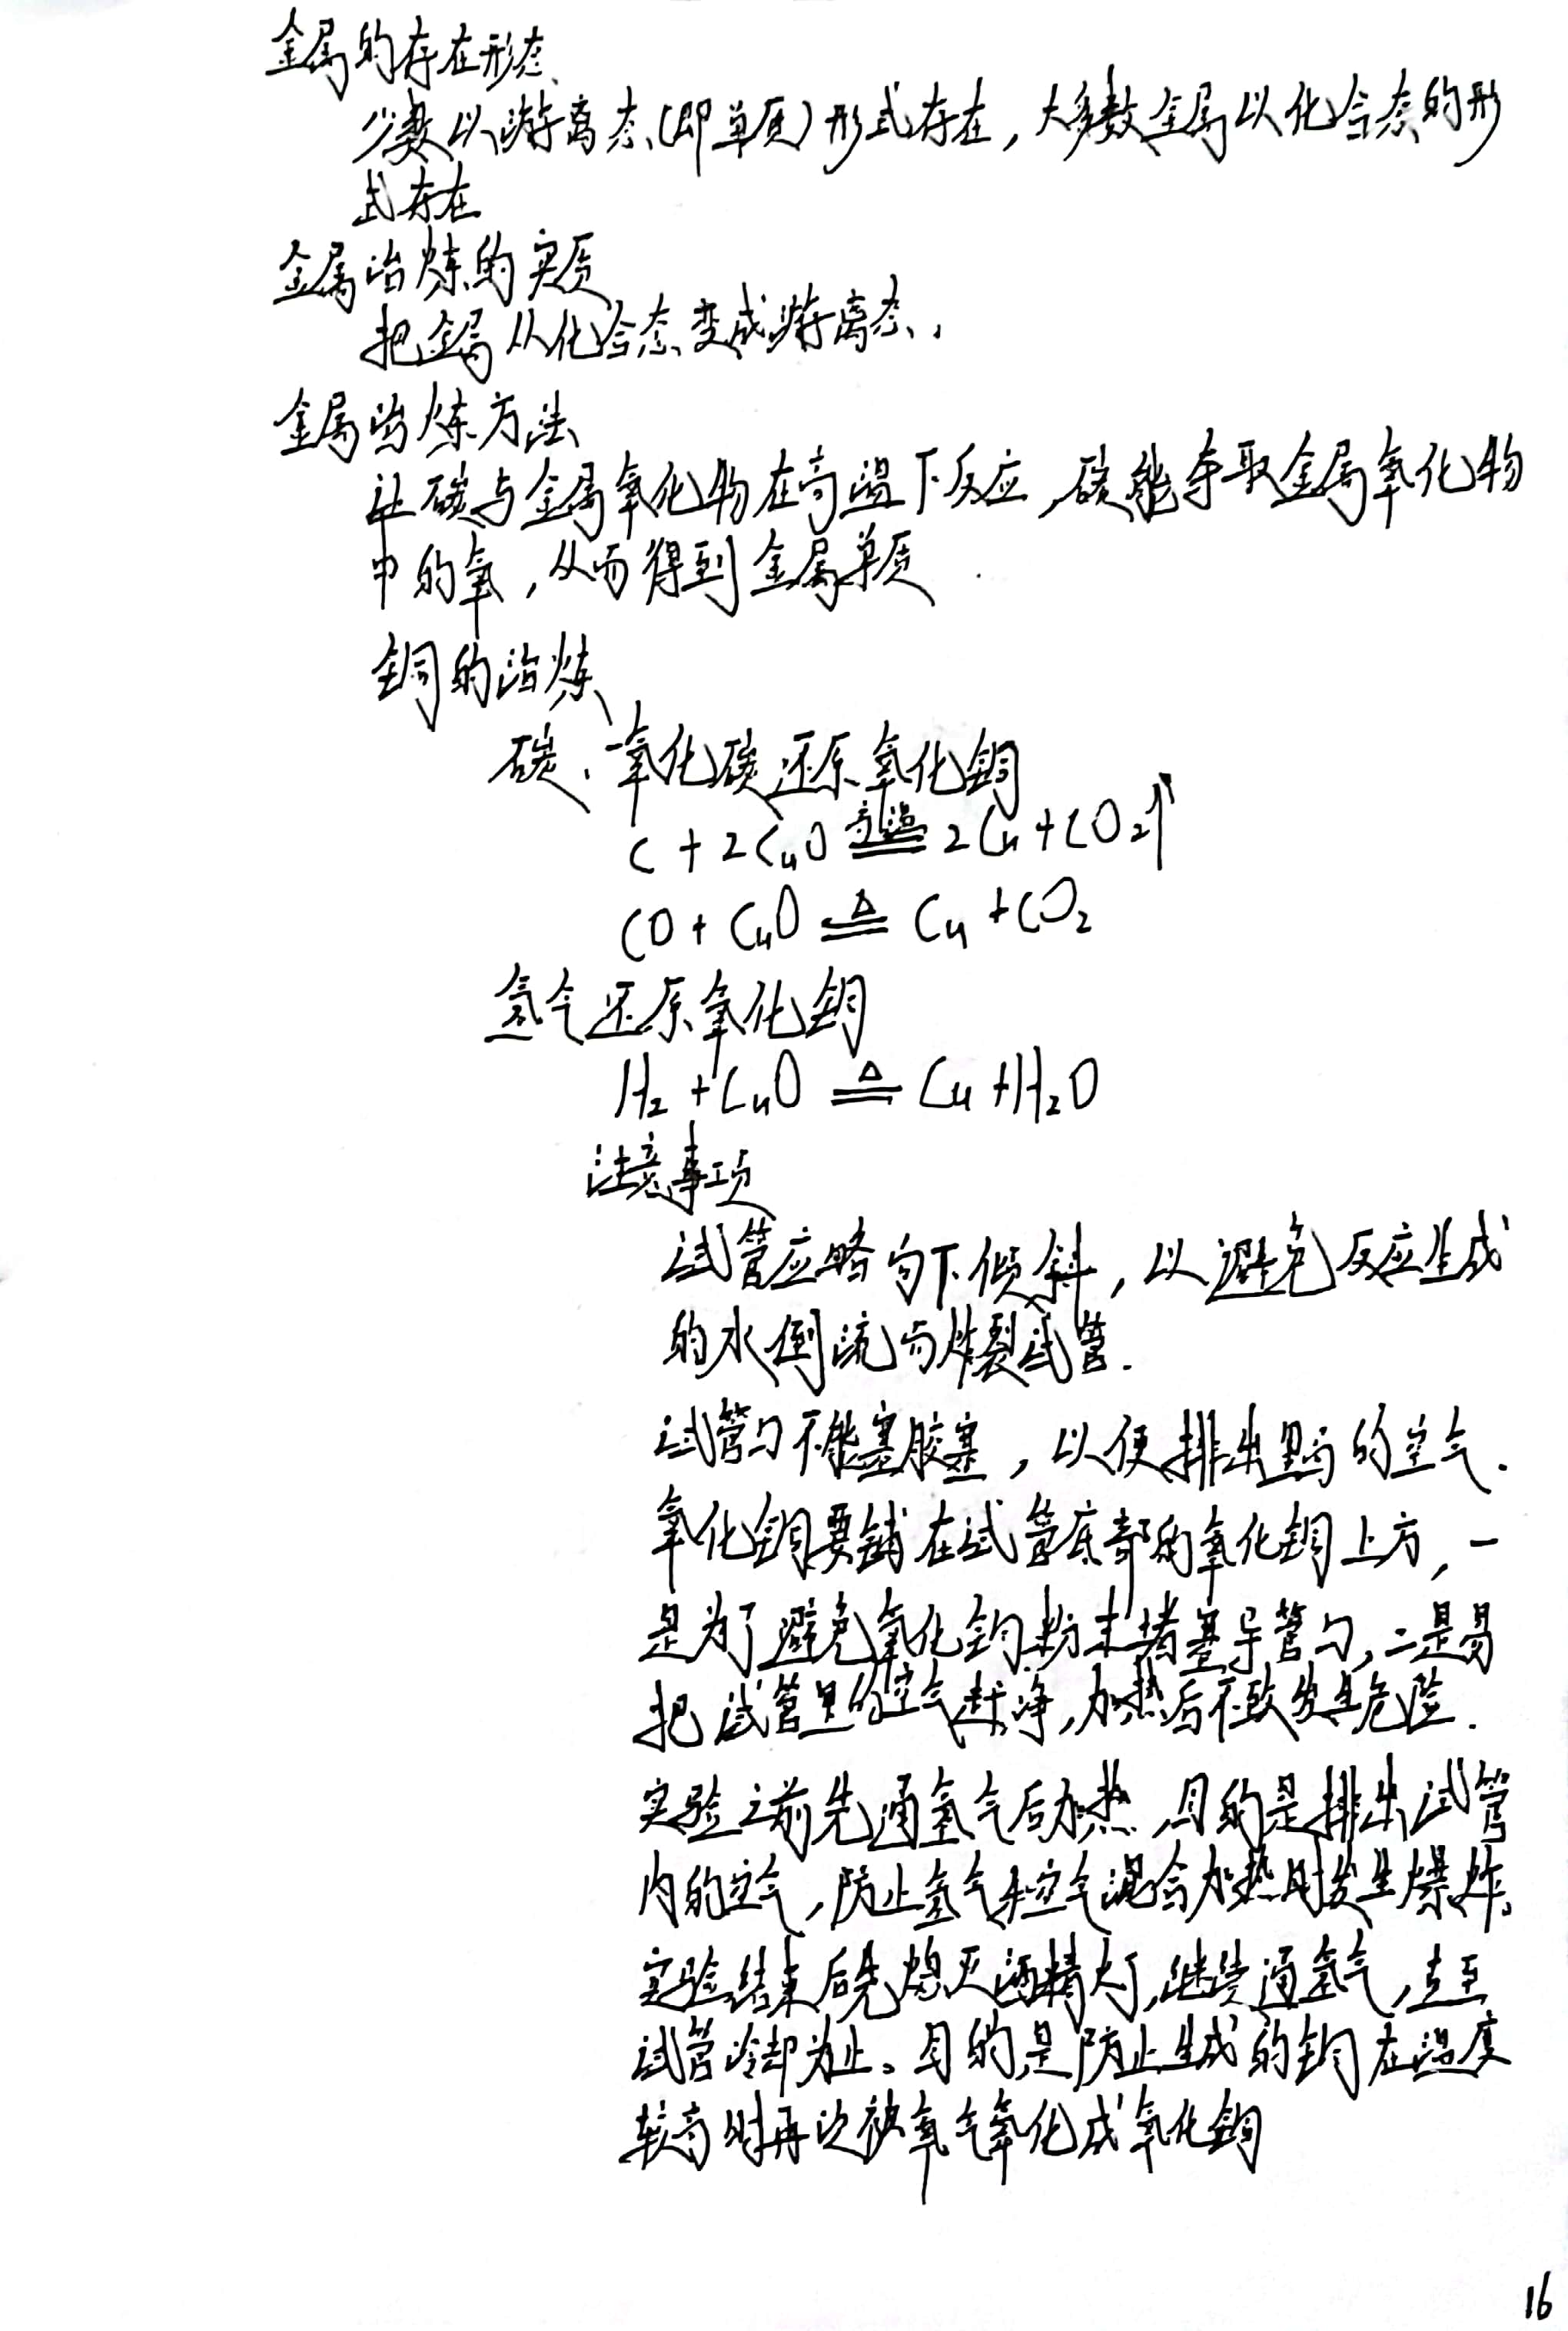 金属的存在形态
少数以游离态(即单质)形式存在,大多数金属以化合态的形
式存在
金属冶炼的实质
把金属从化合态变成游离态.
金属冶炼方法
让碳与金属氧化物在高温下反应,碳能夺取金属氧化物
中的氧,从而得到金属单质
铜的冶炼
碳、一氧化碳还原氧化铜
C + 2CuO 高温 2Cu + CO₂↑
CO + CuO ≜ Cu + CO₂
氢气还原氧化铜
H₂ + CuO ≜ Cu + H₂O
注意事项
试管应略向下倾斜,以避免反应生成
的水倒流而炸裂试管.
试管口不能塞胶塞,以便排出里面的空气.
氧化铜要铺在试管底部的氧化铜上方,一
是为了避免氧化铜粉末堵塞导管口,二是易
把试管里的空气赶净,加热后不致发生危险.
实验之前先通氢气后加热,目的是排出试管
内的空气,防止氢气和空气混合加热时发生爆炸.
实验结束后先熄灭酒精灯,继续通氢气,直至
试管冷却为止。目的是防止生成的铜在温度
较高时再次被氧气氧化成氧化铜
16